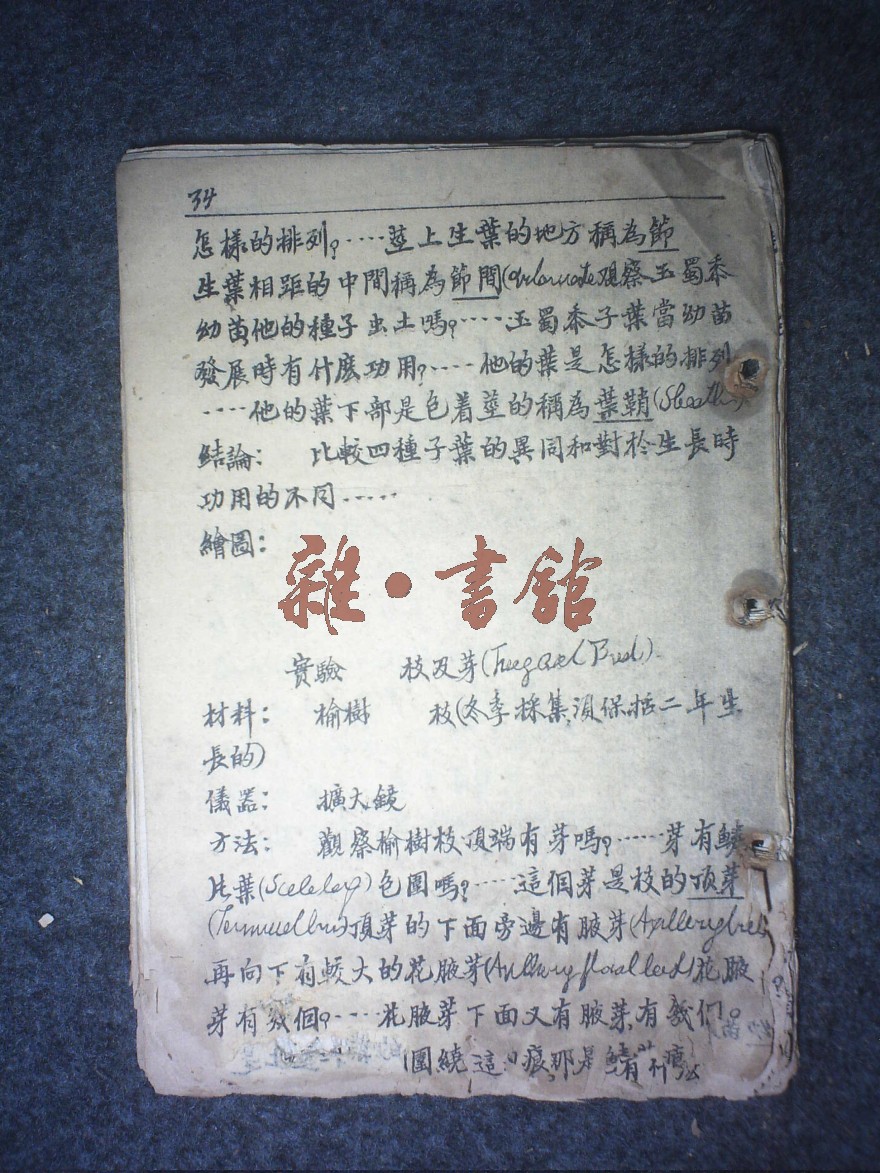 34
怎樣的排列?……莖上生葉的地方稱為節
生葉相距的中間稱為節間(觀察玉蜀黍
幼苗他的種子出土嗎?……玉蜀黍子葉當幼苗
發展時有什麼功用?……他的葉是怎樣的排列
……他的葉下部是包着莖的稱為葉鞘(Sheath)
結論: 比較四種子葉的異同和對於生長時
功用的不同……
繪圖:
雜·書館
實驗 枝及芽
材料: 榆樹 枝(冬季採集須保括二年生
長的)
儀器: 擴大鏡
方法: 觀察榆樹枝頂端有芽嗎?……芽有鱗
片葉包圍嗎?……這個芽是枝的頂芽
頂芽的下面旁邊有腋芽
再向下有較大的花腋芽花腋
芽有幾個?……花腋芽下面又有腋芽有幾們?
(圍繞這 痕那是鱗芽痕